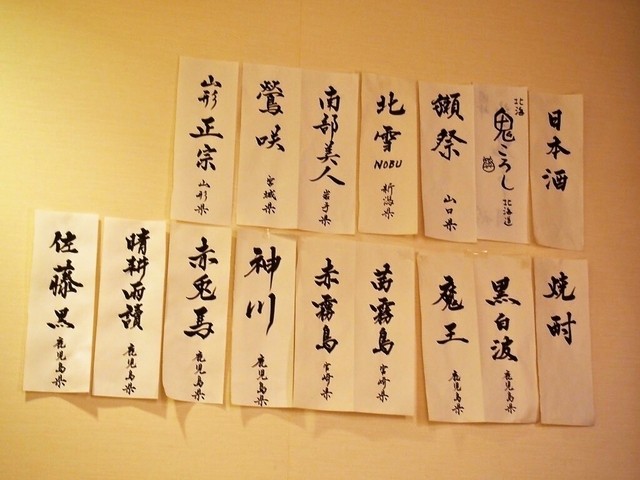 日本酒
北海
鬼ころし
北海道
獺祭
山口県
北雪
NOBU
新潟県
南部美人
岩手県
鶯咲
宮城県
山形
正宗
山形県
焼酎
黒白波
鹿児島県
魔王
鹿児島県
茜霧島
宮崎県
赤霧島
宮崎県
神川
鹿児島県
赤兎馬
鹿児島県
晴耕雨讀
鹿児島県
佐藤黒
鹿児島県